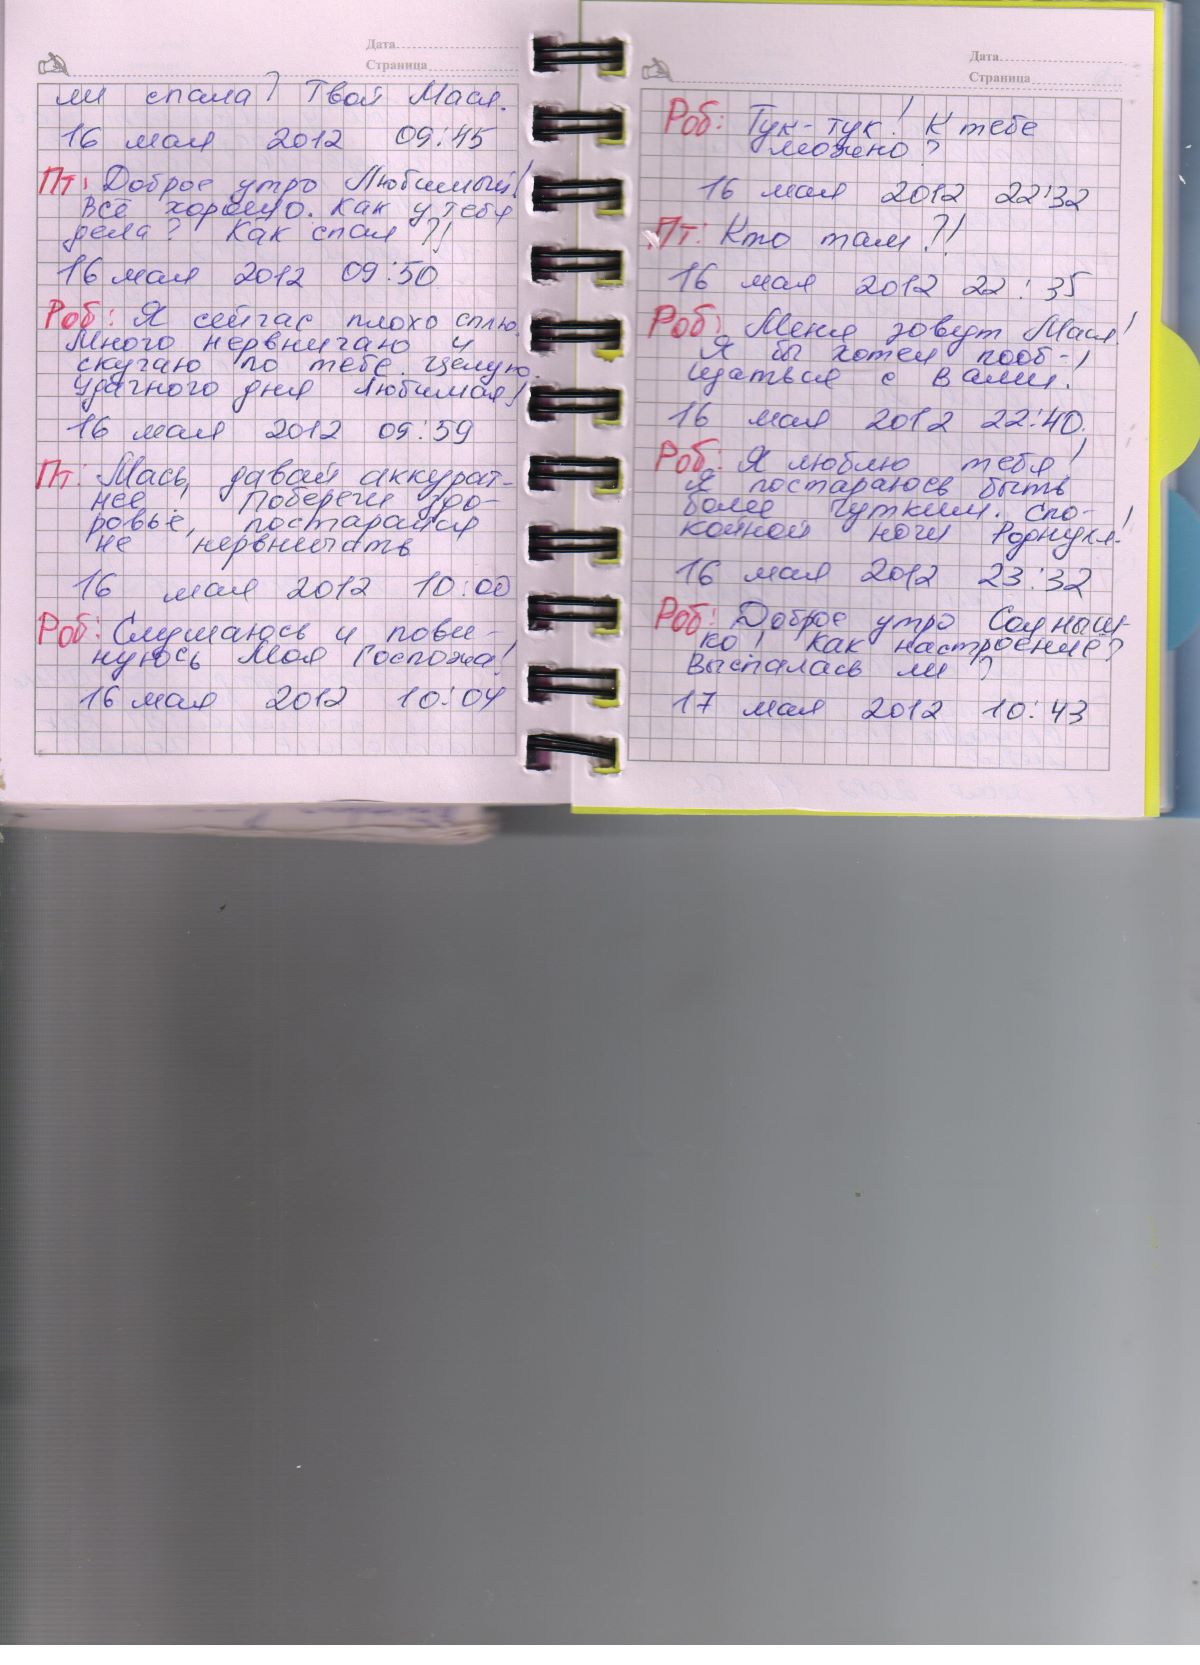 Дата
Страница
ли спала? Твой Мася.
16 мая 2012 09:45
Пт: Доброе утро Любимый!
Всё хорошо. Как у тебя
дела? Как спал?!
16 мая 2012 09:50
Роб: Я сейчас плохо сплю.
Много нервничаю и
скучаю по тебе. Целую.
Удачного дня Любимая!
16 мая 2012 09:59
Пт: Мась, давай аккурат-
нее! Побереги здо-
ровье, постарайся
не нервничать
16 мая 2012 10:00
Роб: Слушаюсь и пови-
нуюсь Моя Госпожа!
16 мая 2012 10:04
Дата
Страница
Роб: Тук-тук! К тебе
можно?
16 мая 2012 22:32
Пт: Кто там?!
16 мая 2012 22:35
Роб: Меня зовут Мася!
Я бы хотел пооб-
щаться с Вами!
16 мая 2012 22:40.
Роб: Я люблю тебя!
Я постараюсь быть
более чутким. Спо-
койной ночи Роднуля!
16 мая 2012 23:32
Роб: Доброе утро Солныш-
ко! Как настроение?
Выспалась ли?
17 мая 2012 10:43